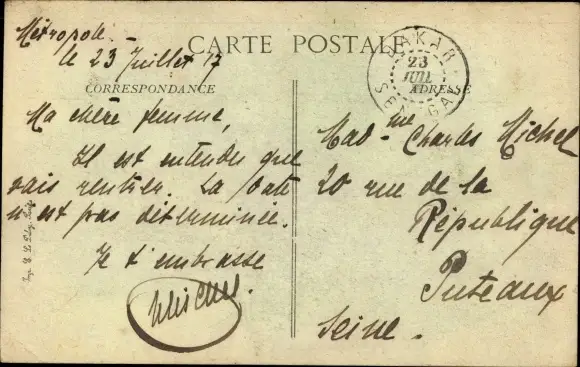 Métropole.
le 23 Juillet 17
CARTE POSTALE
DAKAR
23
JUIL
SÉNÉGAL
CORRESPONDANCE
ADRESSE
Ma chère femme,
Il est entendu que
vais rentrer. La date
n'est pas déterminée.
Je t'embrasse
Michel.
Mad-me Charles Michel
20 rue de la
République
Puteaux
Seine.